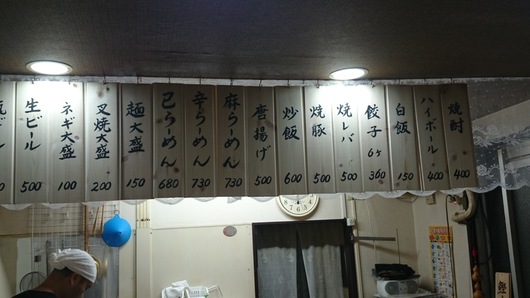 焼酎 400
ハイボール 400
白飯 150
餃子 6ケ 360
焼レバ 500
焼豚 500
炒飯 600
唐揚げ 500
麻らーめん 730
辛らーめん 730
巳らーめん 680
麺大盛 150
叉焼大盛 200
ネギ大盛 100
生ビール 500